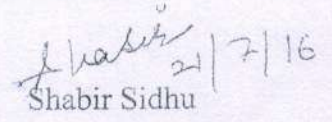 Shabir
21/7/16
Shabir Sidhu